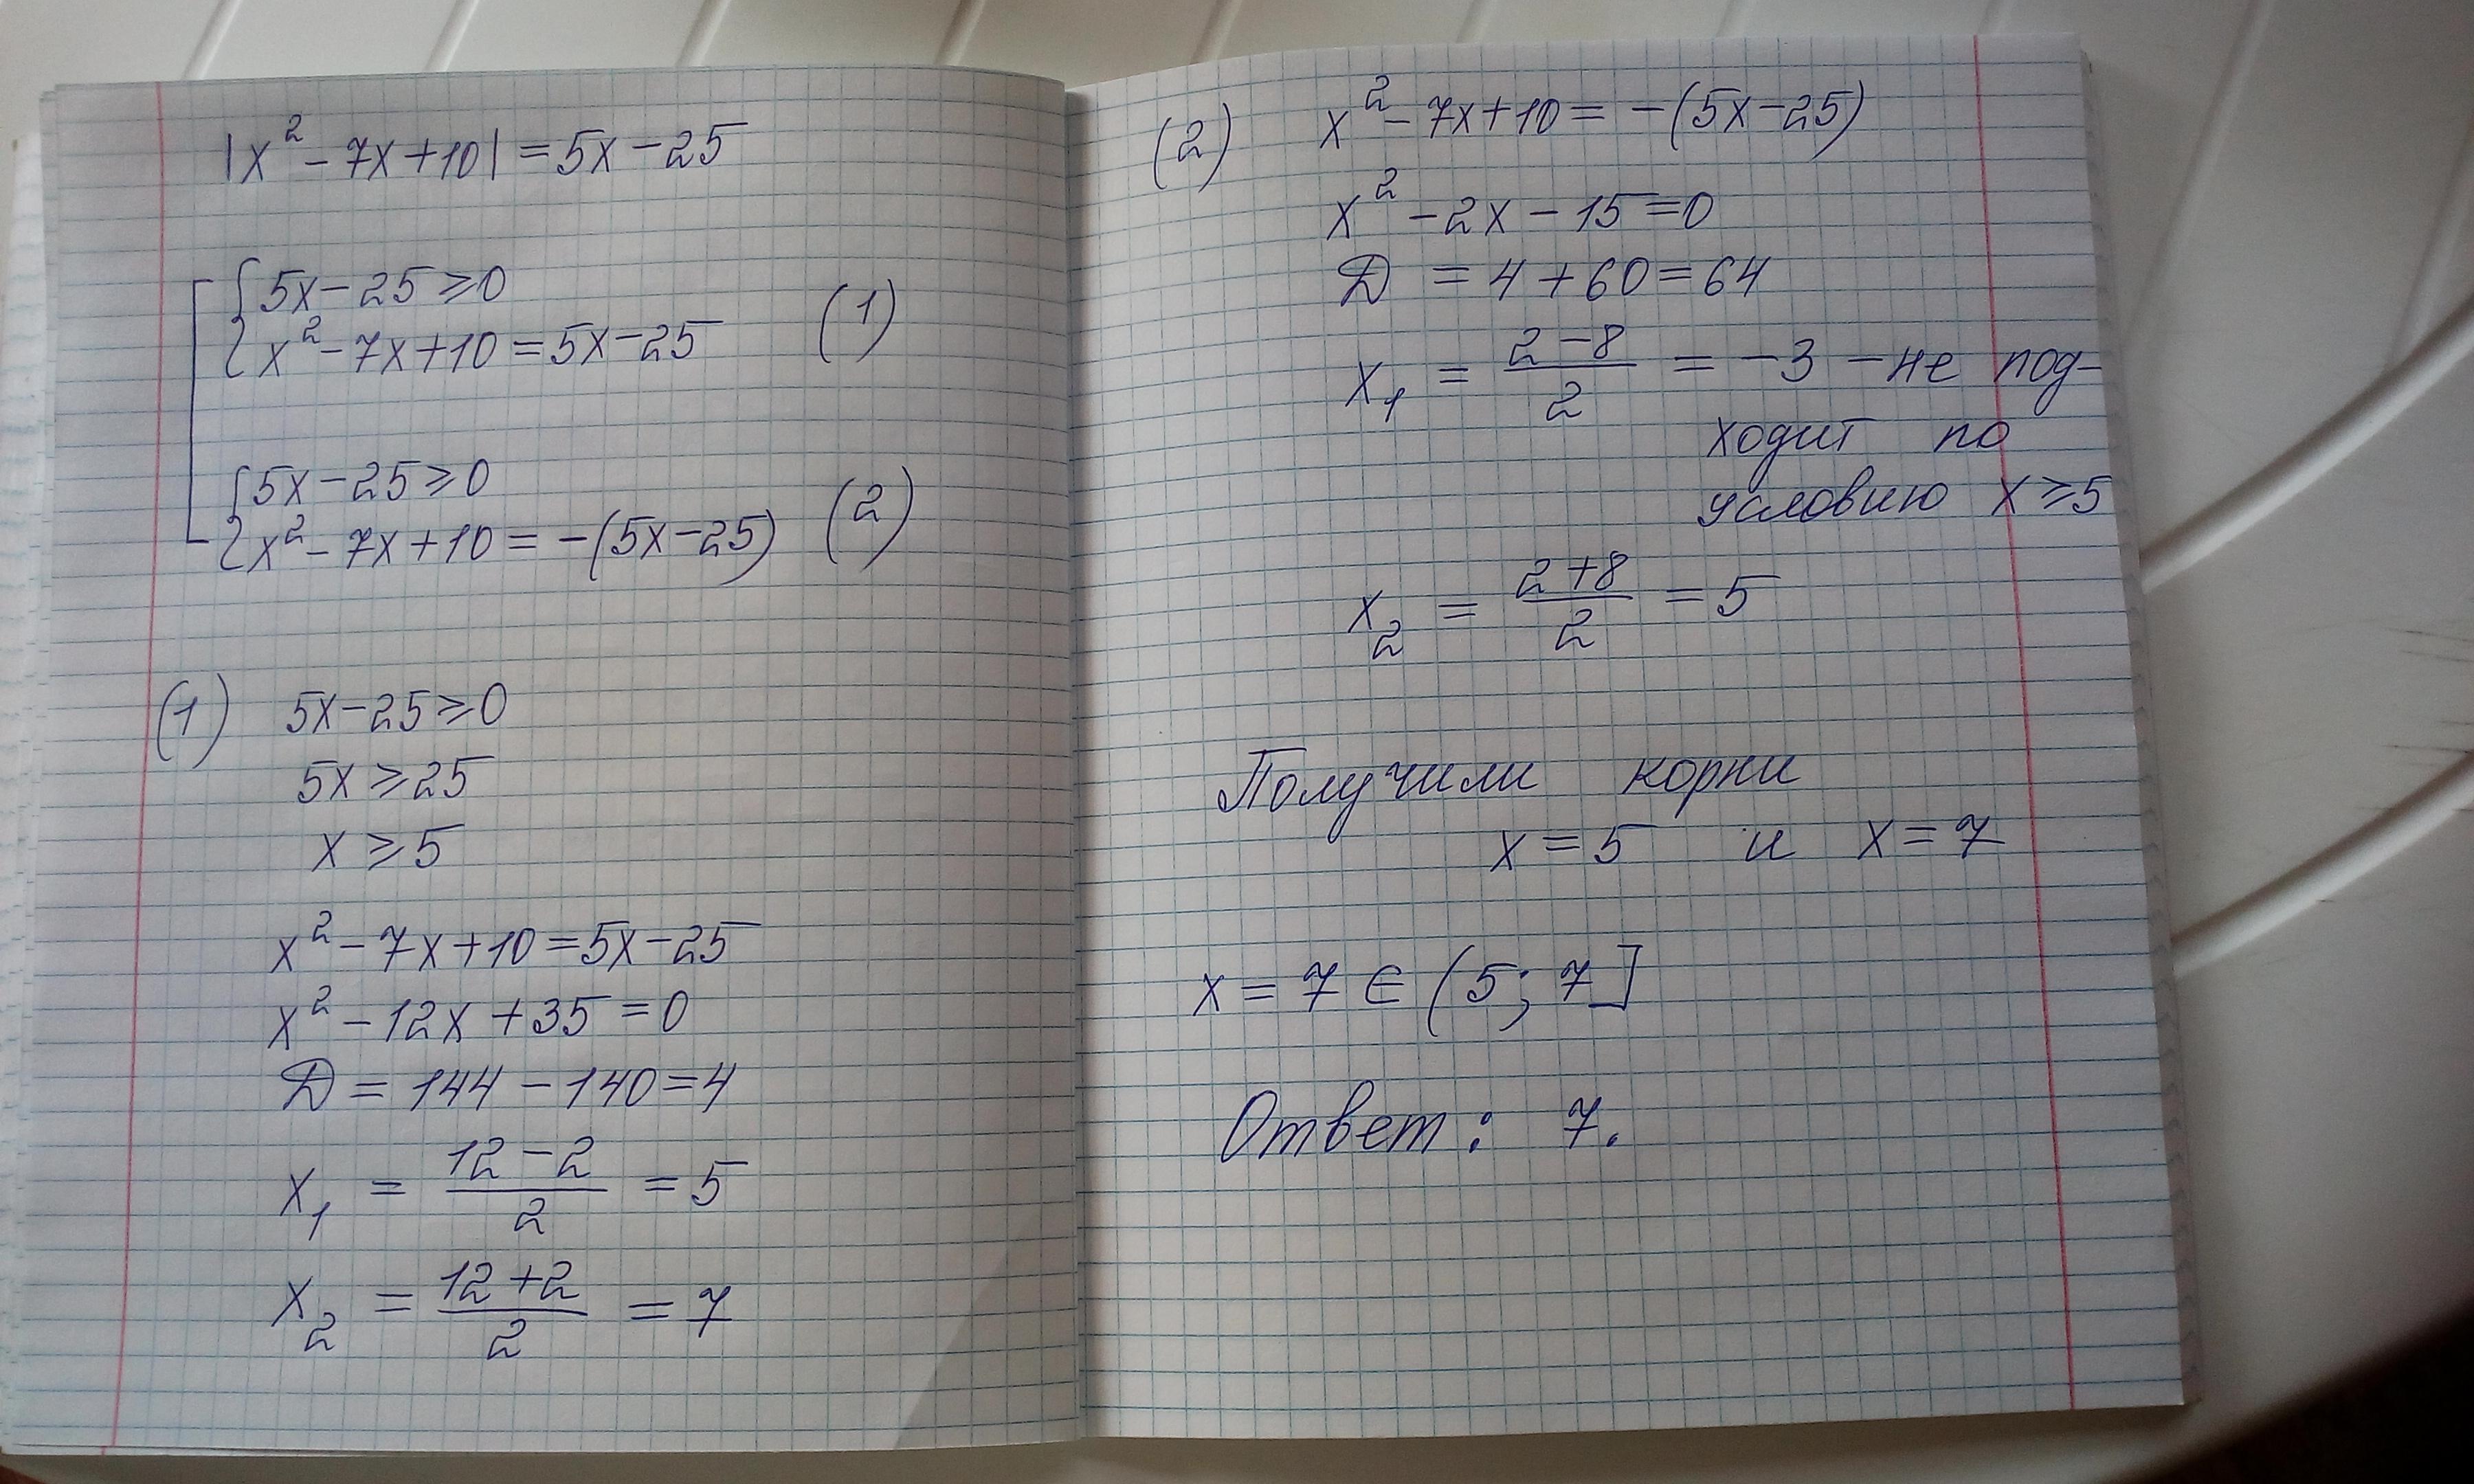 |x² - 7x + 10| = 5x - 25
{5x - 25 ≥ 0
{x² - 7x + 10 = 5x - 25 (1)
{5x - 25 ≥ 0
{x² - 7x + 10 = -(5x - 25) (2)
(1) 5x - 25 ≥ 0
5x ≥ 25
x ≥ 5
x² - 7x + 10 = 5x - 25
x² - 12x + 35 = 0
D = 144 - 140 = 4
x₁ = (12 - 2)/2 = 5
x₂ = (12 + 2)/2 = 7
(2) x² - 7x + 10 = -(5x - 25)
x² - 2x - 15 = 0
D = 4 + 60 = 64
x₁ = (2 - 8)/2 = -3 - не под-
ходит по
условию x ≥ 5
x₂ = (2 + 8)/2 = 5
Получили корни
x = 5 и x = 7
x = 7 ∈ (5; 7]
Ответ: 7.